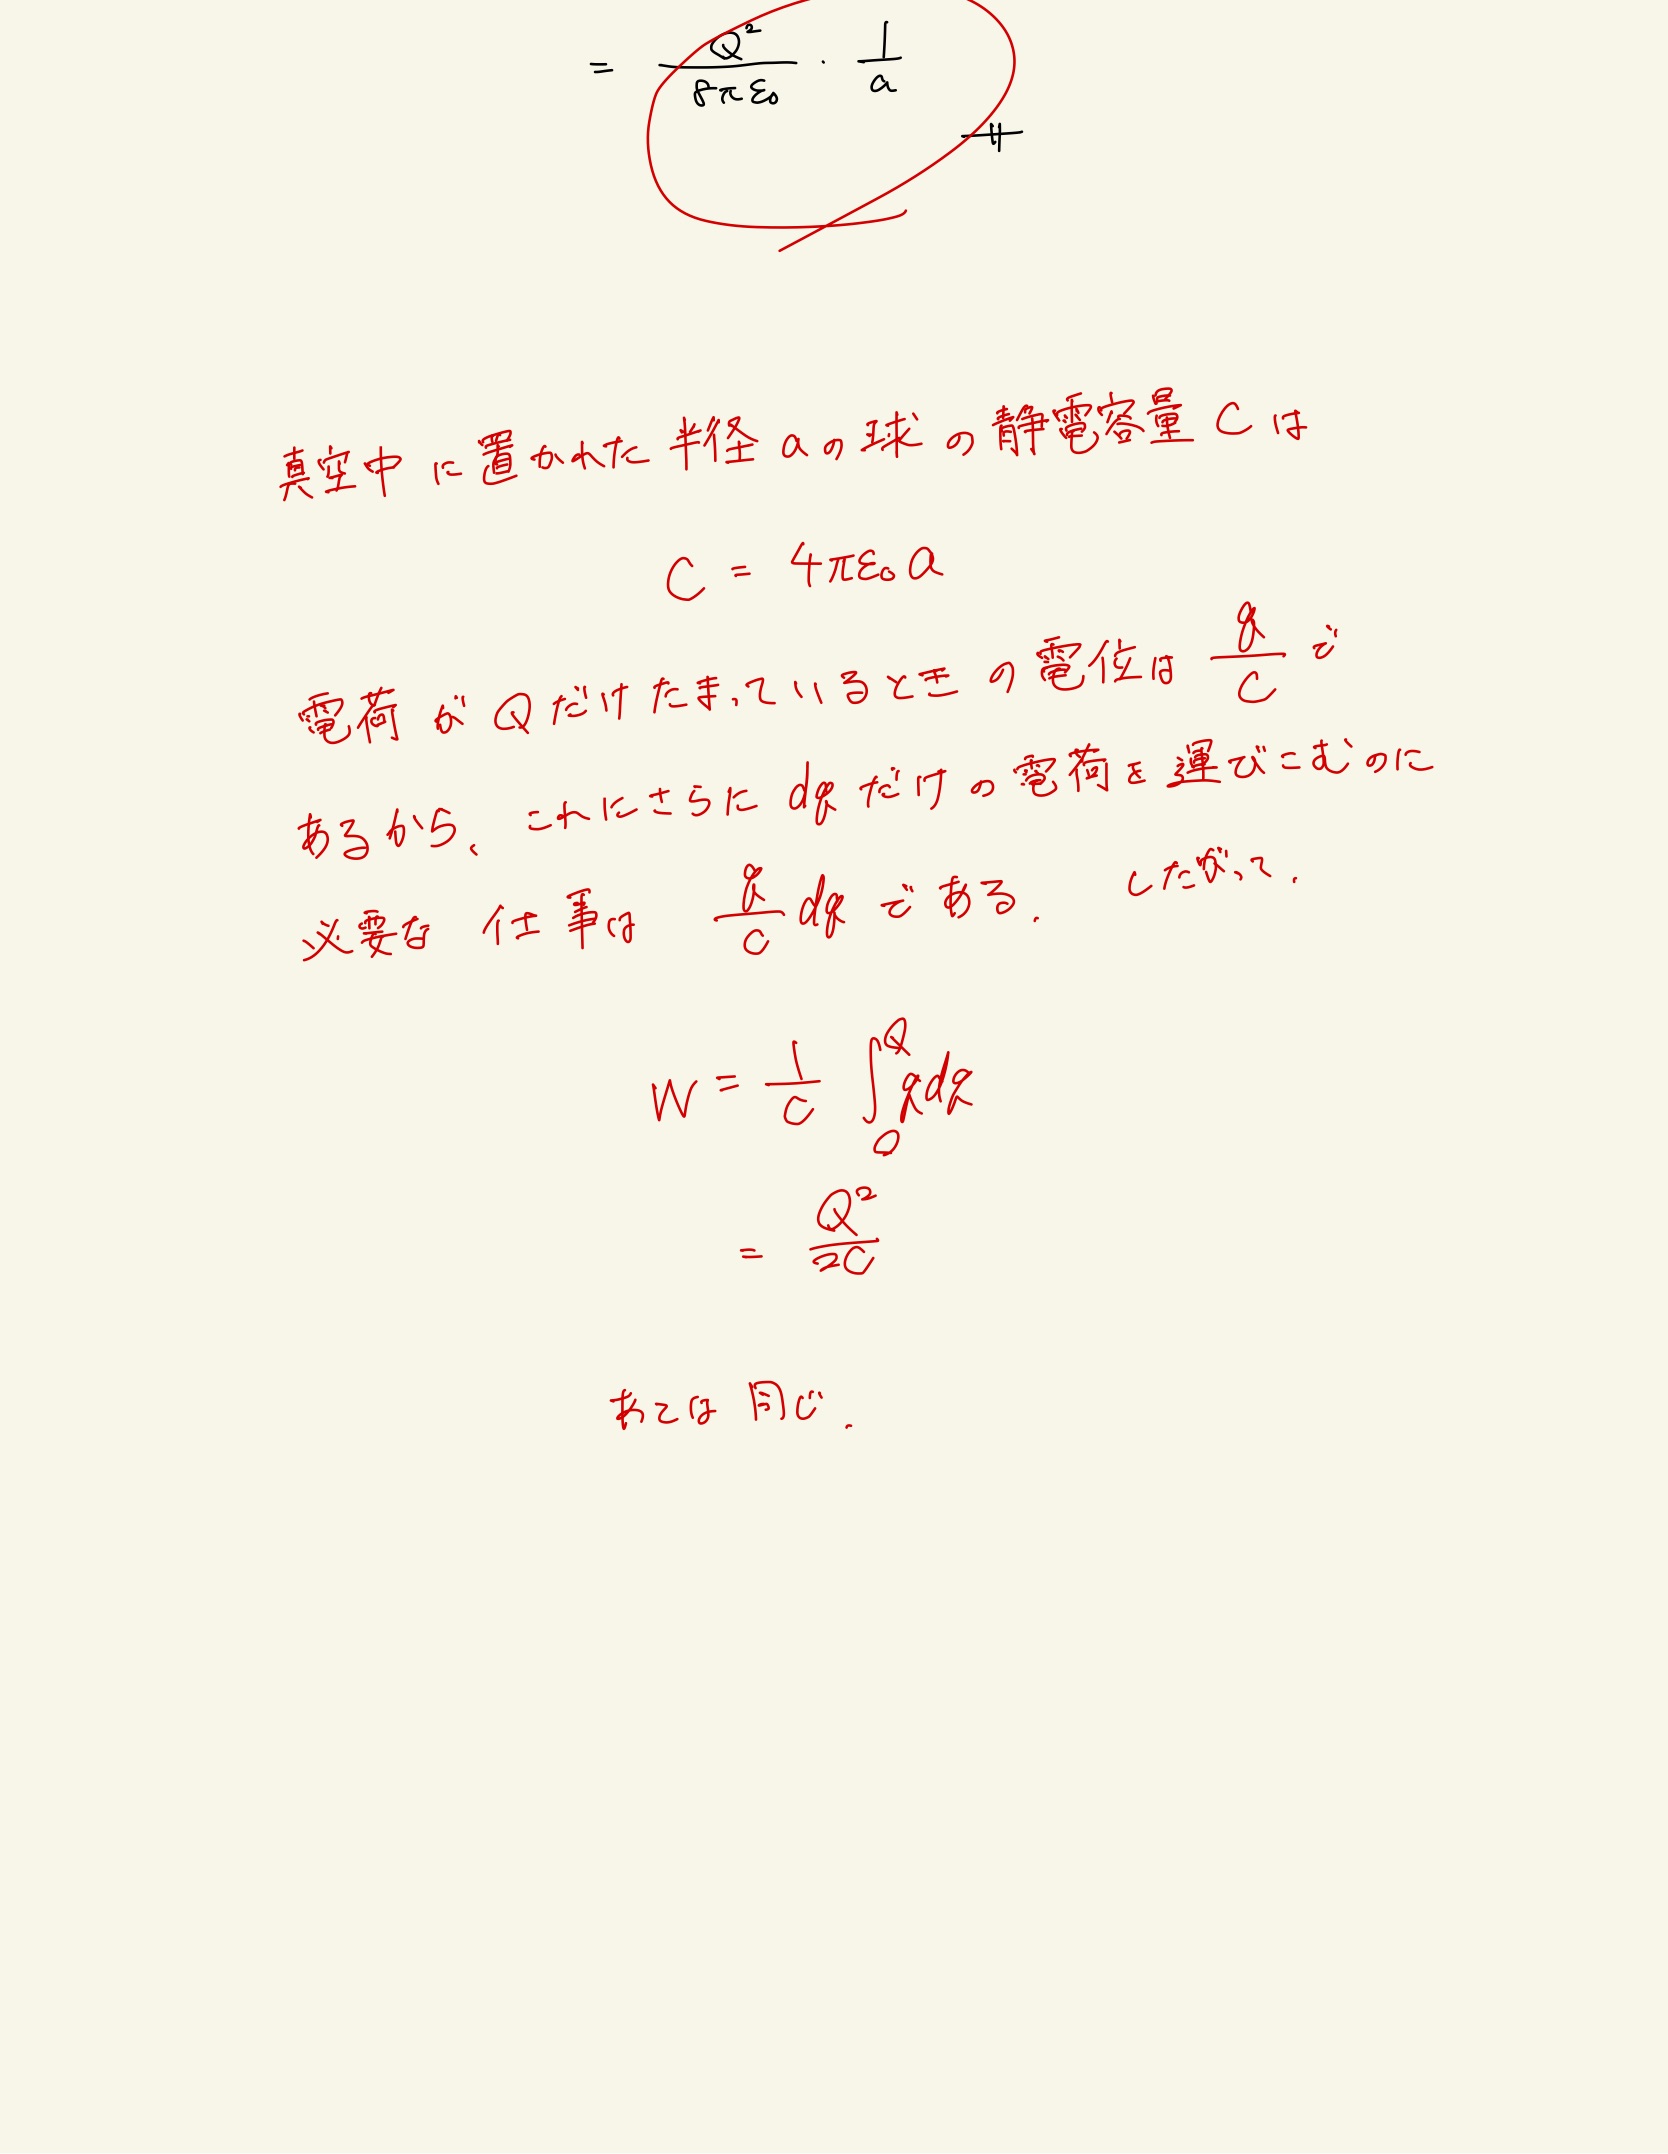 = Q²/8πε₀ · 1/a
真空中に置かれた半径aの球の静電容量Cは
C = 4πε₀a
電荷がQだけたまっているときの電位は q/C で
あるから、これにさらにdqだけの電荷を運びこむのに
必要な仕事は q/C dq である. したがって.
W = 1/C ∫₀^Q q dq
= Q²/2C
あとは同じ.